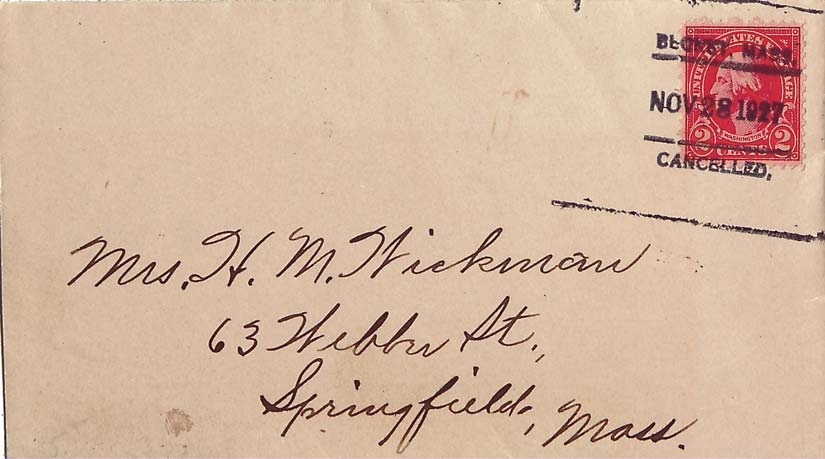 UNITED STATES POSTAGE
WASHINGTON
2 CENTS 2
BECKET, MASS.
NOV 28 1927
CANCELLED.
Mrs. H. M. Wickman
63 Webber St.,
Springfield, Mass.